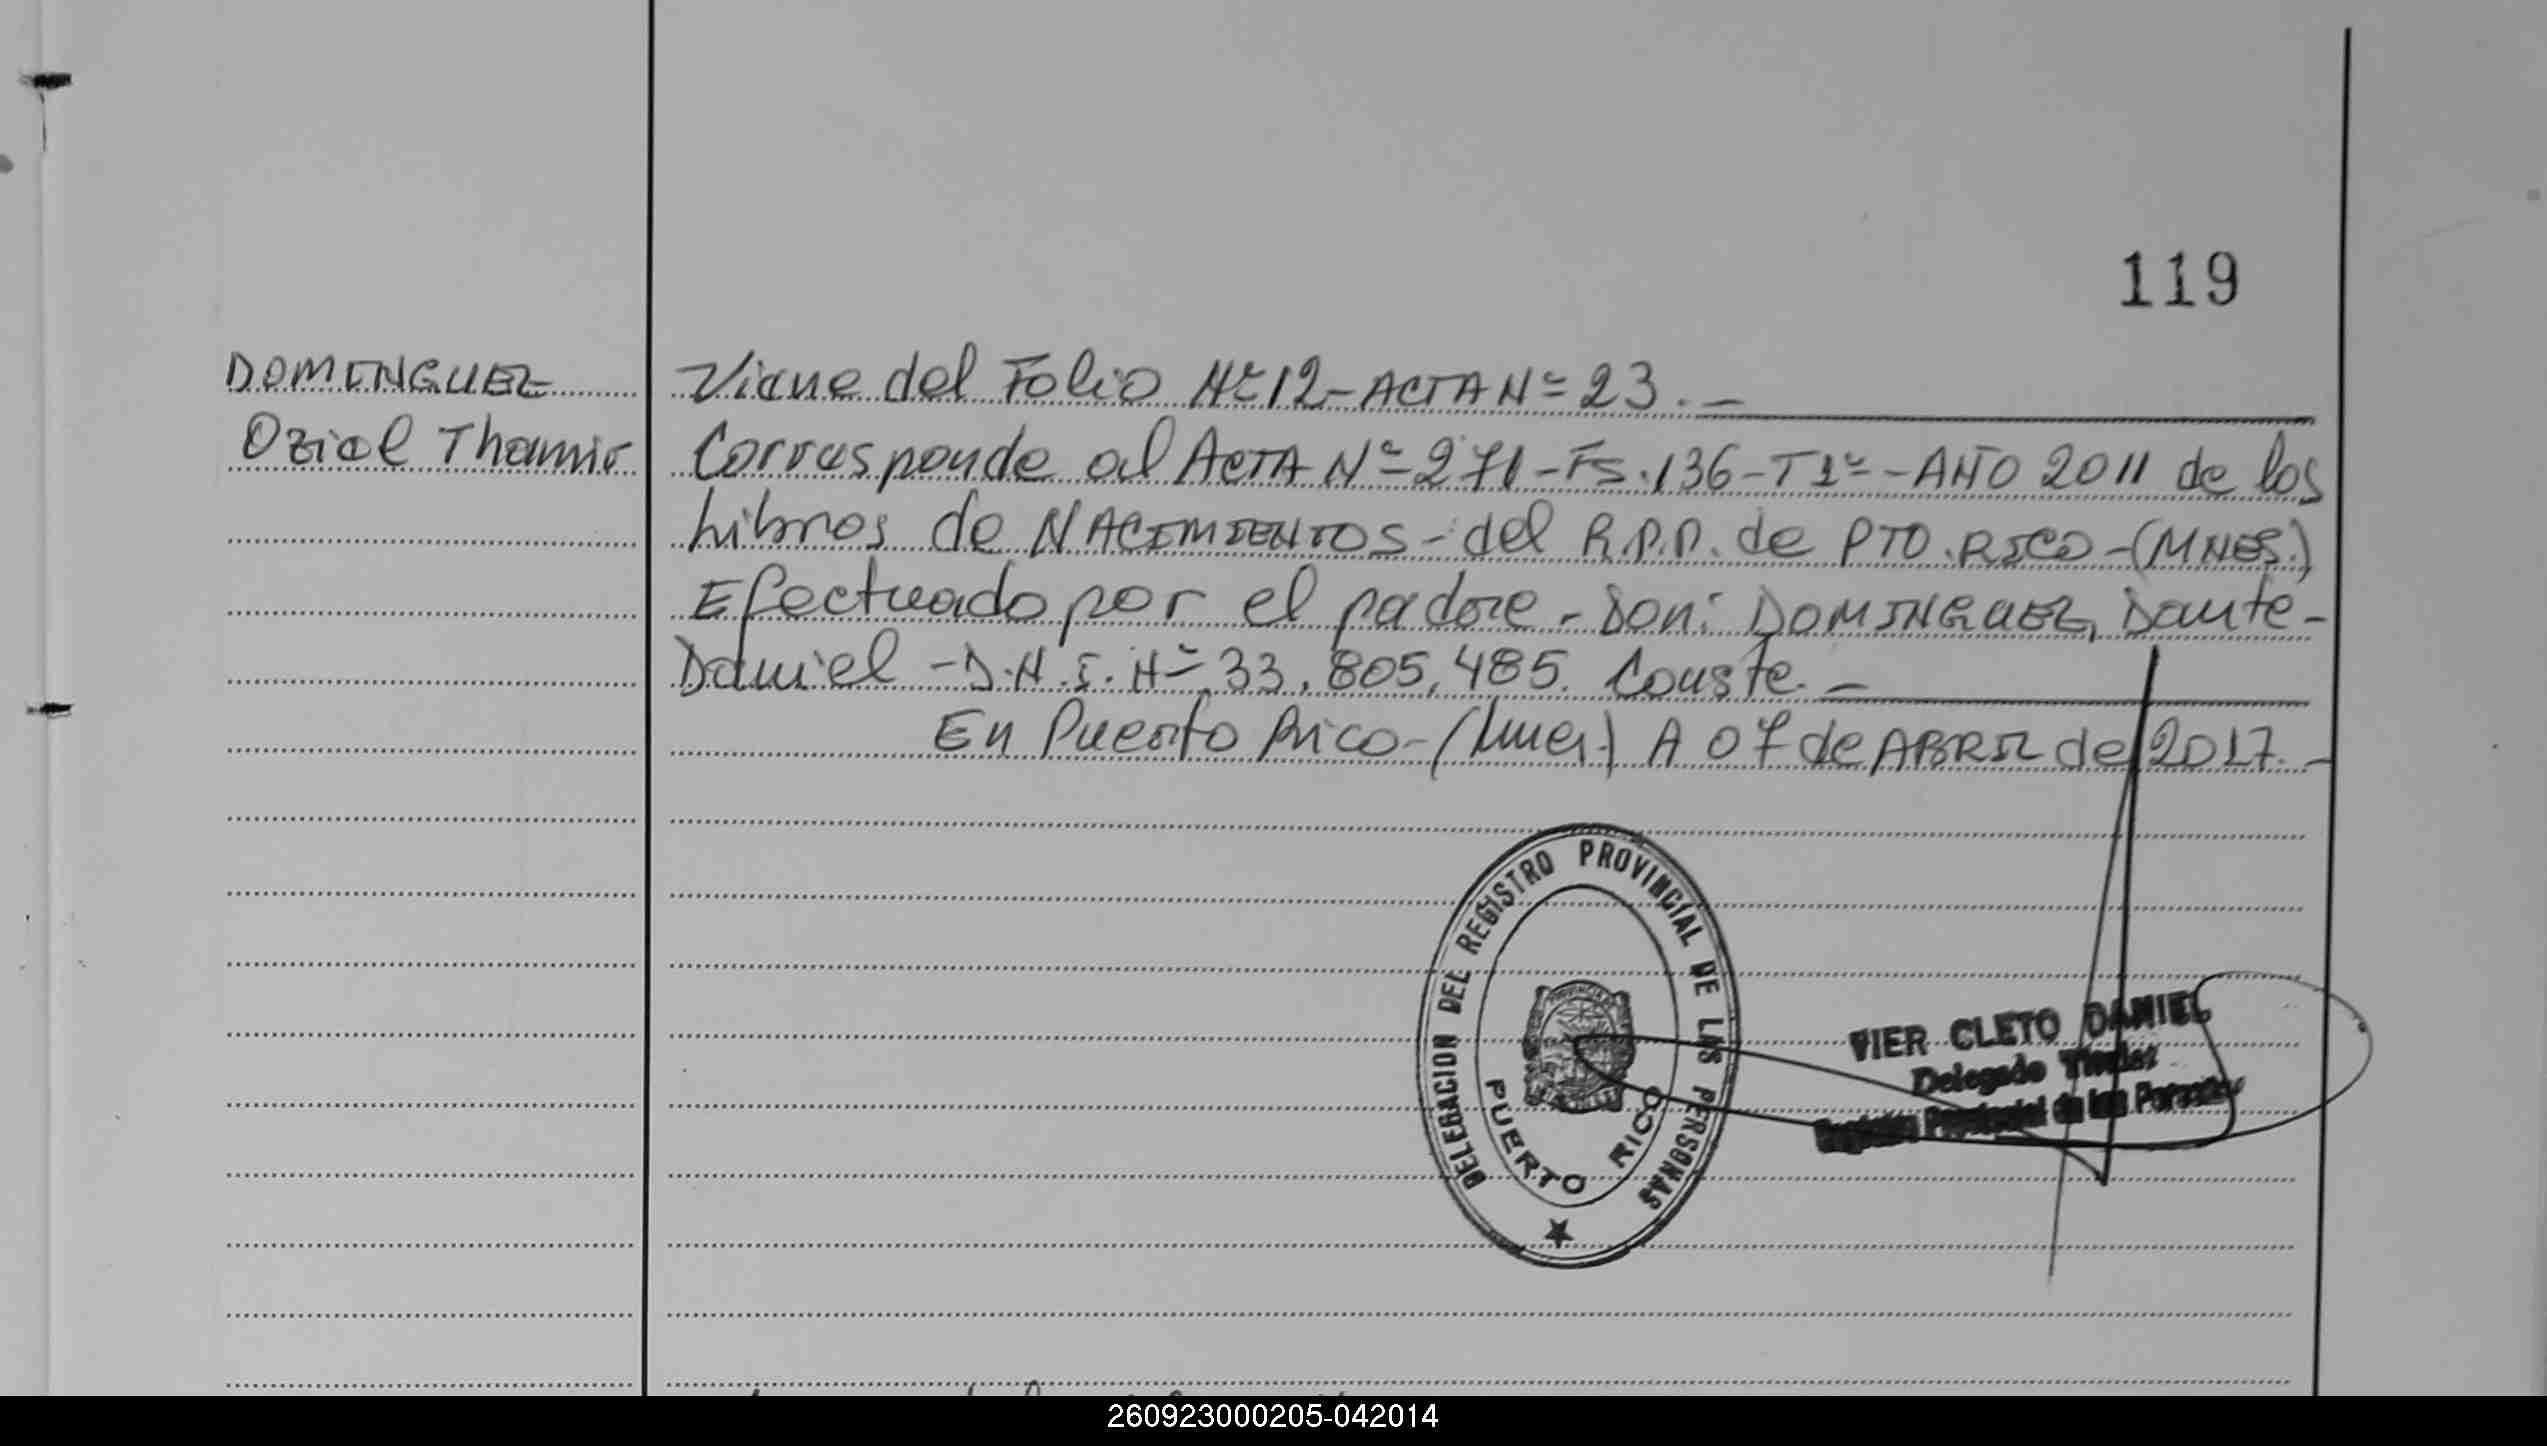 119
DOMINGUEZ
Oziel Thamir
Viene del Folio Nº 12-ACTA Nº 23.-
Corresponde al ACTA Nº 271-FS.136-T1º-AÑO 2011 de los
Libros de NACIMIENTOS-del R.P.P. de PTO.RICO-(MNES.)
Efectuado por el padre-Don: DOMINGUEZ, Dante-
Daniel-D.N.I.Nº 33.805.485. Conste.-
En Puerto Rico-(Mnes.) A 07 de ABRIL de 2017.-
DELEGACION DEL REGISTRO PROVINCIAL DE LAS PERSONAS
PUERTO RICO
VIER CLETO DANIEL
Delegado Titular
Registro Provincial de las Personas
260923000205-042014